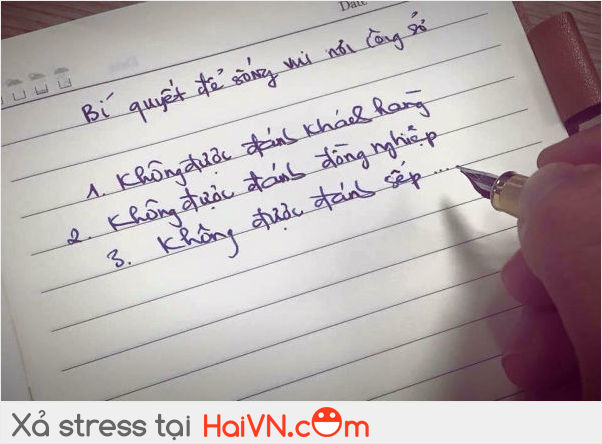 Date
Bí quyết để sống vui nơi công sở
1. Không được đánh khách hàng
2. Không được đánh đồng nghiệp
3. Không được đánh sếp ....
Xả stress tại HaiVN.com